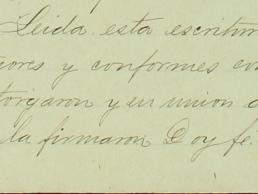 Leida esta escritur
ores y conformes con
torgaron y en union d
la firmaron Doy fé.